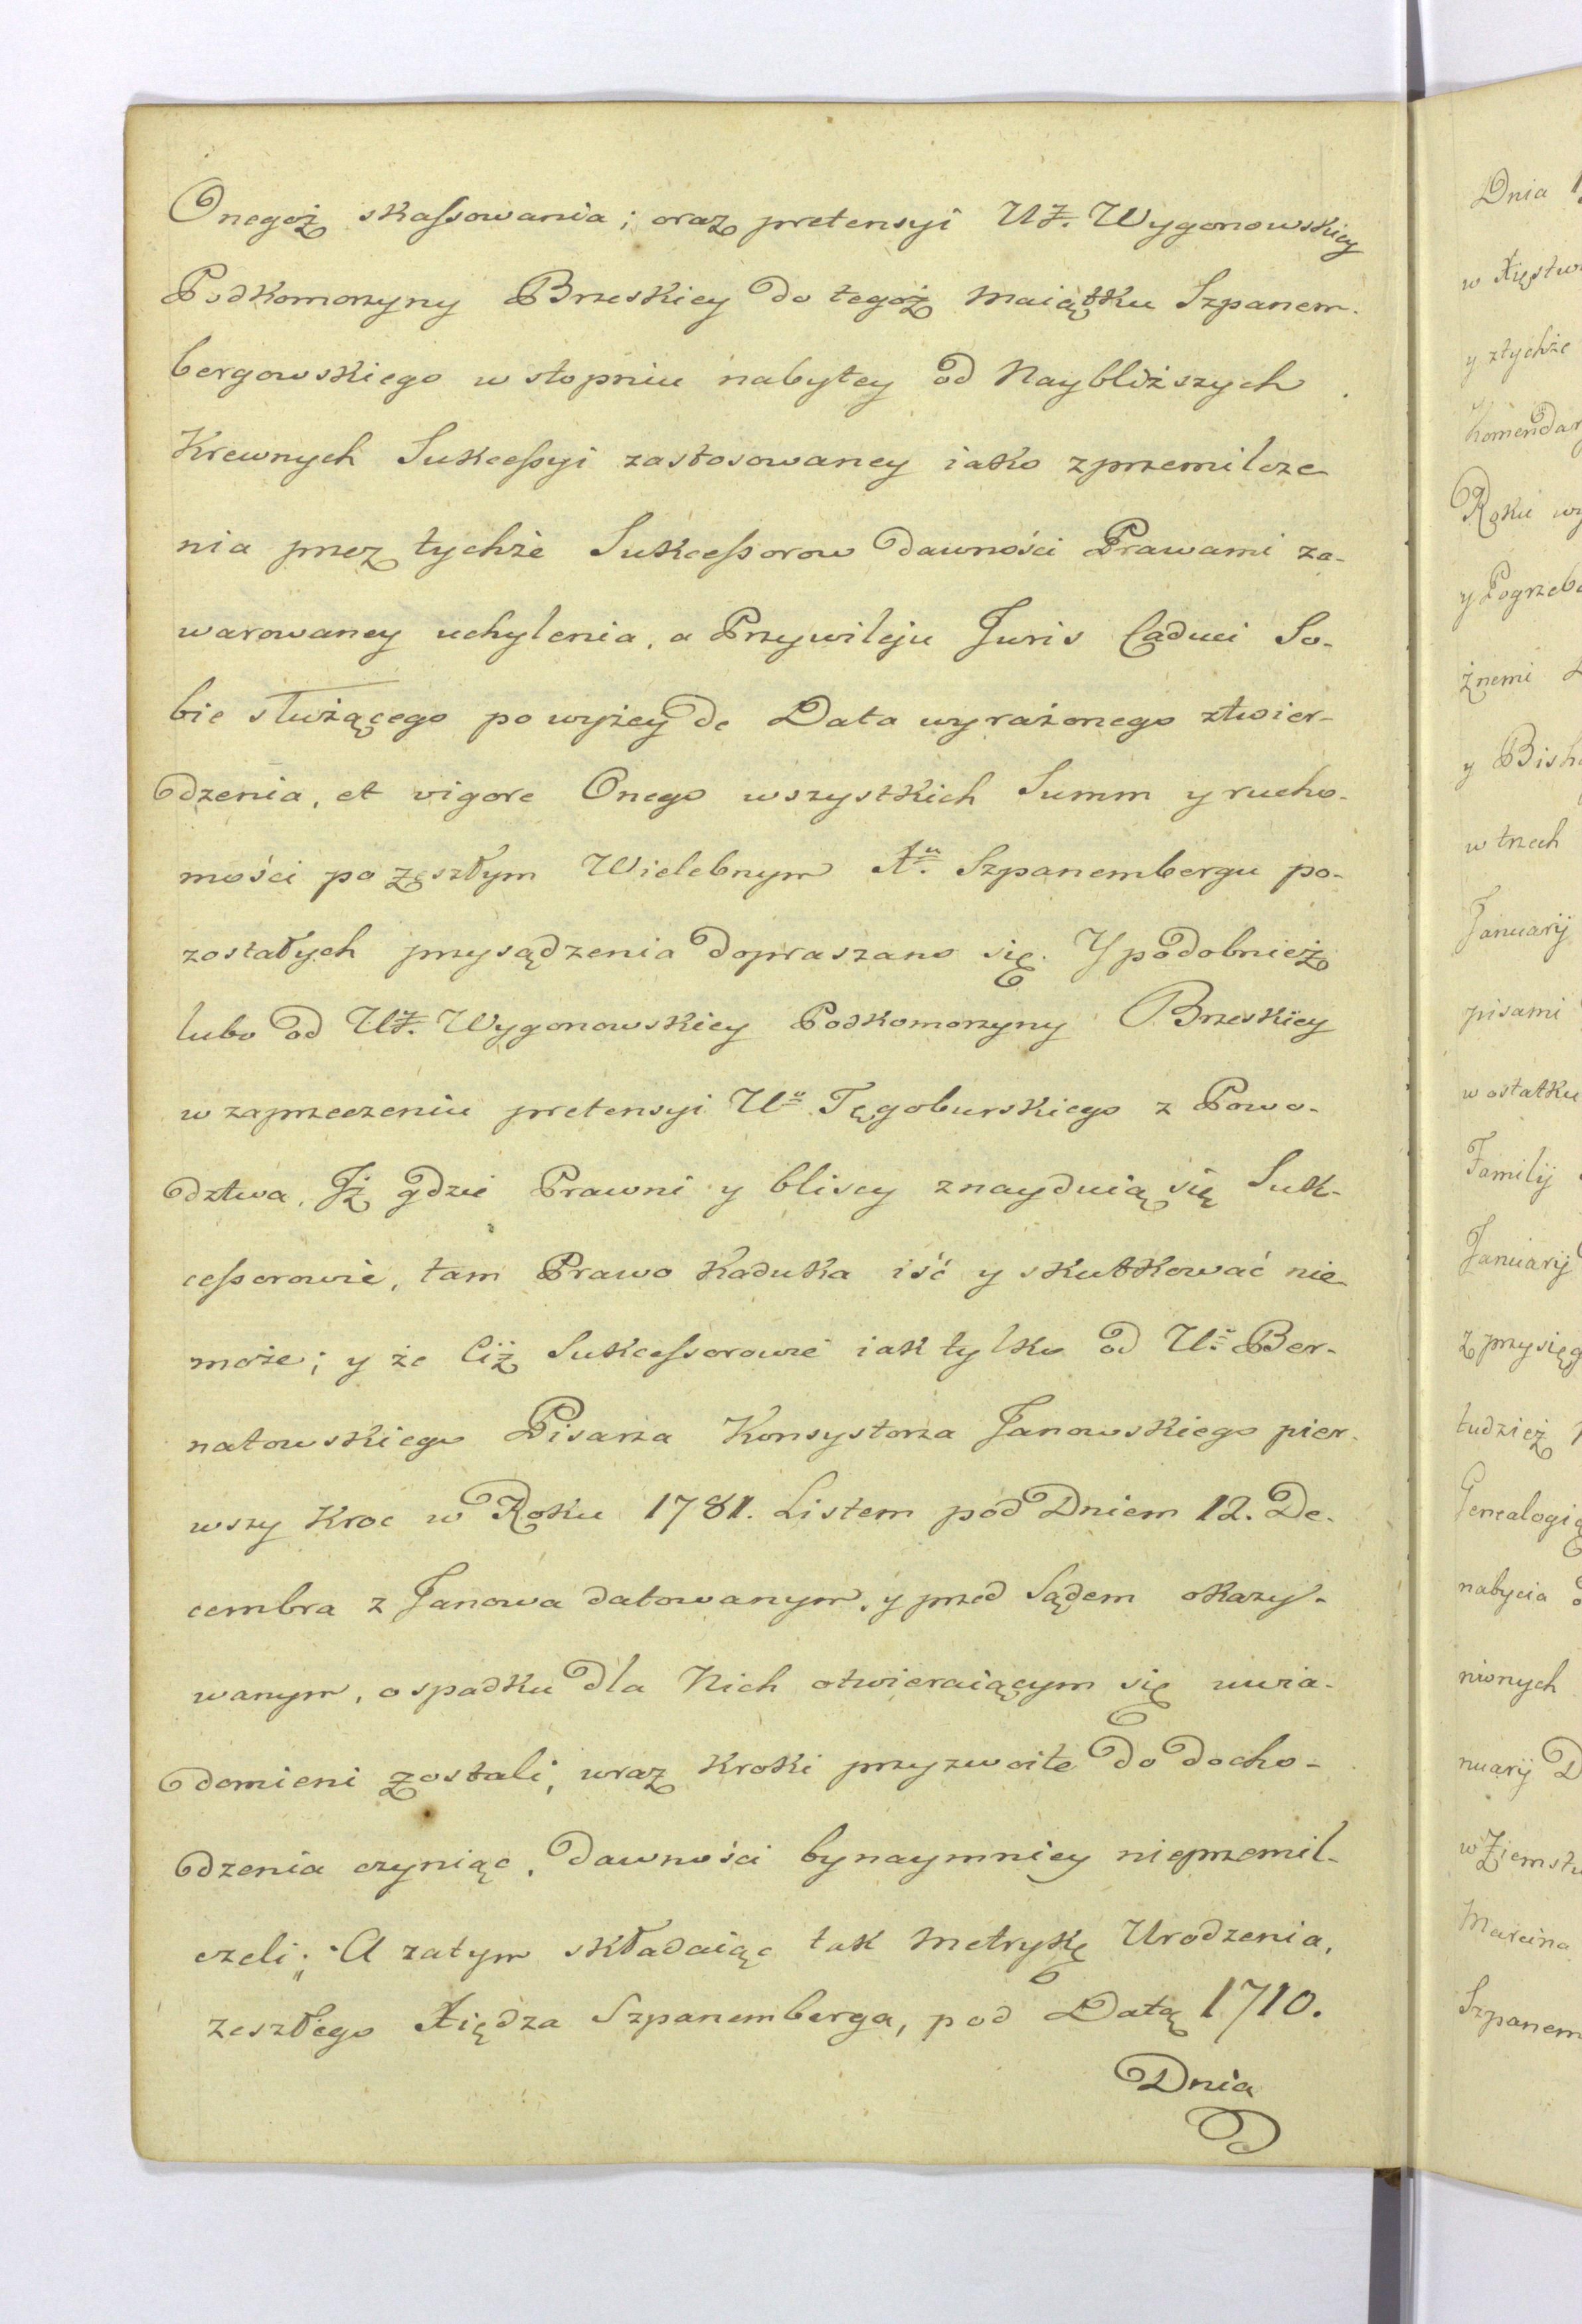 Onegoż skassowania; oraz pretensyi UJ. Wygonowskiey
Podkomorzyny Brzeskiey do tegoż Maiątku Szpanem-
bergowskiego w stopniu nabytey od Naybliższych
Krewnych Sukcessyi zastosowaney iako z przemilcze
nia przez tychże Sukcessorow dawności Prawami za-
warowaney uchylenia, a Przywileju Juris Caduci So-
bie służącego powyżey de Data wyrażonego ztwier-
dzenia, et vigore Onego wszystkich Summ y rucho-
mości po zeszłym Wielebnym Xu Szpanembergu po-
zostałych przysądzenia dopraszano się. Y podobnież
lubo od UJ. Wygonowskiey Podkomorzyny Brzeskiey
w zaprzeczeniu pretensyi Uo Tęgoburskiego z Powo-
dztwa, Jż gdzie Prawni y bliscy znayduią się Suk-
cessorowie, tam Prawo Kaduka iść y skutkować nie
może; y że Ciż Sukcessorowie iak tylko od Uo Ber-
natowskiego Pisarza Konsystorza Janowskiego pier-
wszy kroc w Roku 1781. Listem pod Dniem 12. De-
cembra z Janowa datowanym, y przed Sądem okazy-
wanym, o spadku dla Nich otwieraiącym się uwia-
domieni zostali, wraz kroki przyzwoite do docho-
dzenia czyniąc, dawności bynaymniey nieprzemil-
czeli; A zatym składaiąc tak Metrykę Urodzenia,
zeszłego Xiędza Szpanemberga, pod Datą 1710.
Dnia
Dnia
w Xięstw
y ztychże
Komendar
Roku wy
y Pogrzeb
żnemi
y Bisk
w trzech
Januarij
pisami
w ostatku
Familij
Januarij
z przysięg
tudzież
Genealogią
nabycia
nionych
nuarij D
w Ziemstw
Marcina
Szpanem